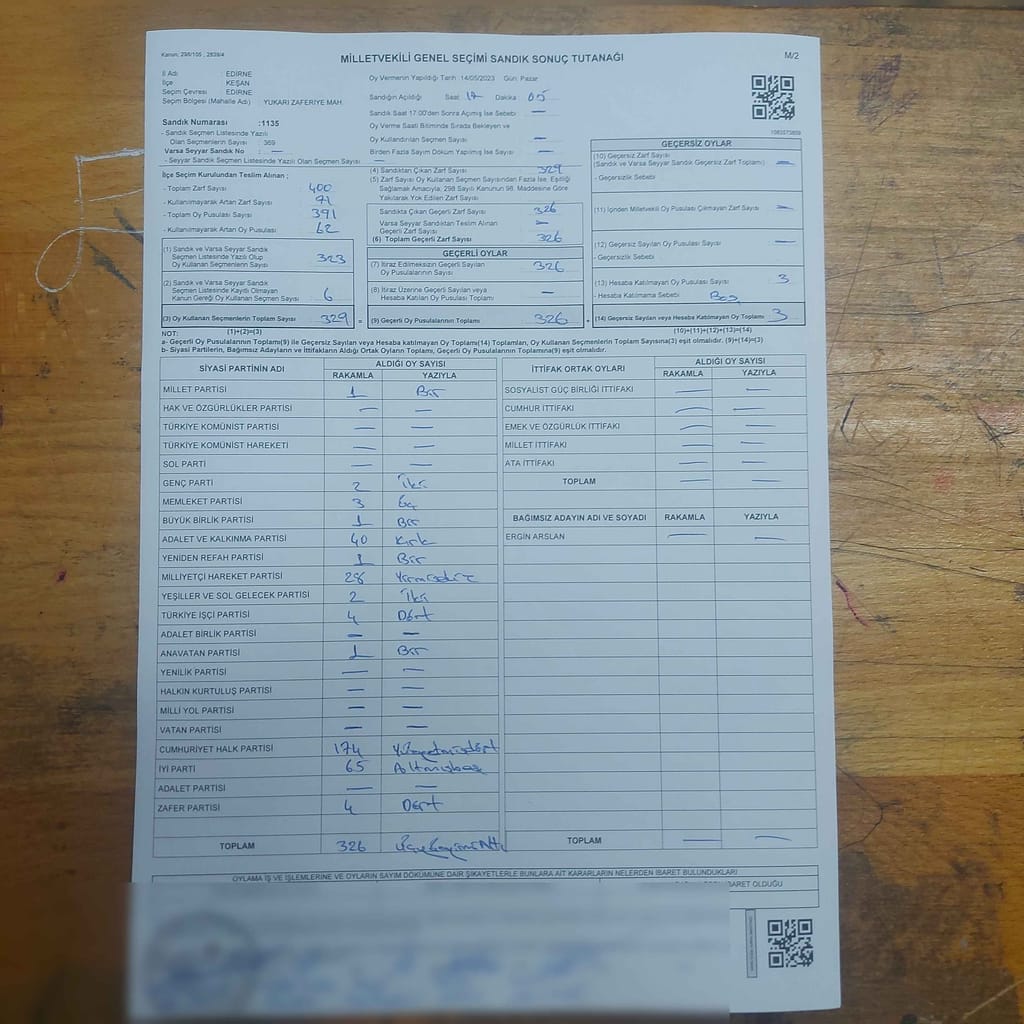 Kanun; 298/105 , 2839/4
MİLLETVEKİLİ GENEL SEÇİMİ SANDIK SONUÇ TUTANAĞI
M/2
İl Adı : EDİRNE
İlçe : KEŞAN
Seçim Çevresi : EDİRNE
Seçim Bölgesi (Mahalle Adı) YUKARI ZAFERİYE MAH.
Sandık Numarası :1135
- Sandık Seçmen Listesinde Yazılı
Olan Seçmenlerin Sayısı : 369
Varsa Seyyar Sandık No : —
- Seyyar Sandık Seçmen Listesinde Yazılı Olan Seçmen Sayısı —
İlçe Seçim Kurulundan Teslim Alınan ;
- Toplam Zarf Sayısı 400
- Kullanılmayarak Artan Zarf Sayısı 71
- Toplam Oy Pusulası Sayısı 391
- Kullanılmayarak Artan Oy Pusulası 62
(1) Sandık ve Varsa Seyyar Sandık
Seçmen Listesinde Yazılı Olup
Oy Kullanan Seçmenlerin Sayısı 323
(2) Sandık ve Varsa Seyyar Sandık
Seçmen Listesinde Kayıtlı Olmayan
Kanun Gereği Oy Kullanan Seçmen Sayısı 6
(3) Oy Kullanan Seçmenlerin Toplam Sayısı 329 =
(1)+(2)=(3)
Oy Vermenin Yapıldığı Tarih :14/05/2023 Gün: Pazar
Sandığın Açıldığı Saat 17 Dakika 05
Sandık Saat 17:00'den Sonra Açılmış İse Sebebi —
Oy Verme Saati Bitiminde Sırada Bekleyen ve
Oy Kullandırılan Seçmen Sayısı —
Birden Fazla Sayım Döküm Yapılmış İse Sayısı —
(4) Sandıktan Çıkan Zarf Sayısı 329
(5) Zarf Sayısı Oy Kullanan Seçmen Sayısından Fazla İse, Eşitliği
Sağlamak Amacıyla, 298 Sayılı Kanunun 98. Maddesine Göre
Yakılarak Yok Edilen Zarf Sayısı
Sandıkta Çıkan Geçerli Zarf Sayısı 326
Varsa Seyyar Sandıktan Teslim Alınan
Geçerli Zarf Sayısı —
(6) Toplam Geçerli Zarf Sayısı 326
GEÇERLİ OYLAR
(7) İtiraz Edilmeksizin Geçerli Sayılan
Oy Pusulalarının Sayısı 326
(8) İtiraz Üzerine Geçerli Sayılan veya
Hesaba Katılan Oy Pusulası Toplamı —
(9) Geçerli Oy Pusulalarının Toplamı 326 +
1083573809
GEÇERSİZ OYLAR
(10) Geçersiz Zarf Sayısı
(Sandık ve Varsa Seyyar Sandık Geçersiz Zarf Toplamı) —
- Geçersizlik Sebebi
(11) İçinden Milletvekili Oy Pusulası Çıkmayan Zarf Sayısı —
(12) Geçersiz Sayılan Oy Pusulası Sayısı —
- Geçersizlik Sebebi
(13) Hesaba Katılmayan Oy Pusulası Sayısı 3
- Hesaba Katılmama Sebebi Boş
(14) Geçersiz Sayılan veya Hesaba Katılmayan Oy Toplamı 3
(10)+(11)+(12)+(13)=(14)
NOT:
a- Geçerli Oy Pusulalarının Toplamı(9) ile Geçersiz Sayılan veya Hesaba katılmayan Oy Toplamı(14) Toplamları, Oy Kullanan Seçmenlerin Toplam Sayısına(3) eşit olmalıdır. (9)+(14)=(3)
b- Siyasi Partilerin, Bağımsız Adayların ve İttifakların Aldığı Ortak Oyların Toplamı, Geçerli Oy Pusulalarının Toplamına(9) eşit olmalıdır.
SİYASİ PARTİNİN ADI ALDIĞI OY SAYISI
RAKAMLA YAZIYLA
MİLLET PARTİSİ 1 Bir
HAK VE ÖZGÜRLÜKLER PARTİSİ — —
TÜRKİYE KOMÜNİST PARTİSİ — —
TÜRKİYE KOMÜNİST HAREKETİ — —
SOL PARTİ — —
GENÇ PARTİ 2 İki
MEMLEKET PARTİSİ 3 Üç
BÜYÜK BİRLİK PARTİSİ 1 Bir
ADALET VE KALKINMA PARTİSİ 40 Kırk
YENİDEN REFAH PARTİSİ 1 Bir
MİLLİYETÇİ HAREKET PARTİSİ 28 Yirmisekiz
YEŞİLLER VE SOL GELECEK PARTİSİ 2 İki
TÜRKİYE İŞÇİ PARTİSİ 4 Dört
ADALET BİRLİK PARTİSİ — —
ANAVATAN PARTİSİ 1 Bir
YENİLİK PARTİSİ — —
HALKIN KURTULUŞ PARTİSİ — —
MİLLİ YOL PARTİSİ — —
VATAN PARTİSİ — —
CUMHURİYET HALK PARTİSİ 174 Yüzyetmişdört
İYİ PARTİ 65 Altmışbeş
ADALET PARTİSİ — —
ZAFER PARTİSİ 4 Dört
TOPLAM 326 ÜçyüzyirmiAltı
İTTİFAK ORTAK OYLARI ALDIĞI OY SAYISI
RAKAMLA YAZIYLA
SOSYALİST GÜÇ BİRLİĞİ İTTİFAKI — —
CUMHUR İTTİFAKI — —
EMEK VE ÖZGÜRLÜK İTTİFAKI — —
MİLLET İTTİFAKI — —
ATA İTTİFAKI — —
TOPLAM — —
BAĞIMSIZ ADAYIN ADI VE SOYADI RAKAMLA YAZIYLA
ERGİN ARSLAN — —
TOPLAM — —
OYLAMA İŞ VE İŞLEMLERİNE VE OYLARIN SAYIM DÖKÜMÜNE DAİR ŞİKAYETLERLE BUNLARA AİT KARARLARIN NELERDEN İBARET BULUNDUKLARI
İBARET OLDUĞU